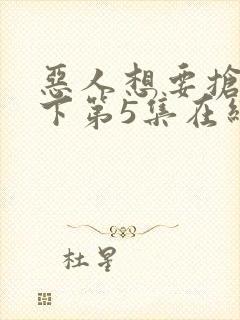 惡人想要搶
下第5集在
杜星